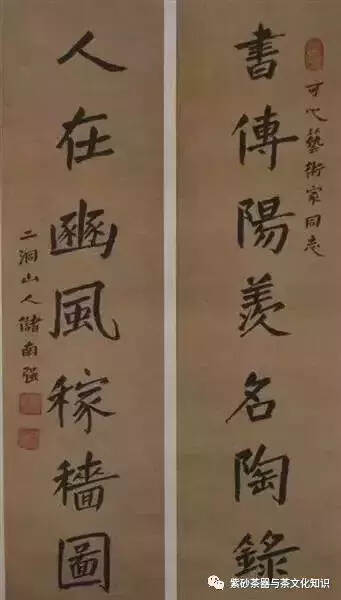 可心藝術家同志
書傳陽羨名陶錄
人在豳風稼穡圖
二洞山人儲南强
紫砂茶器与茶文化知识